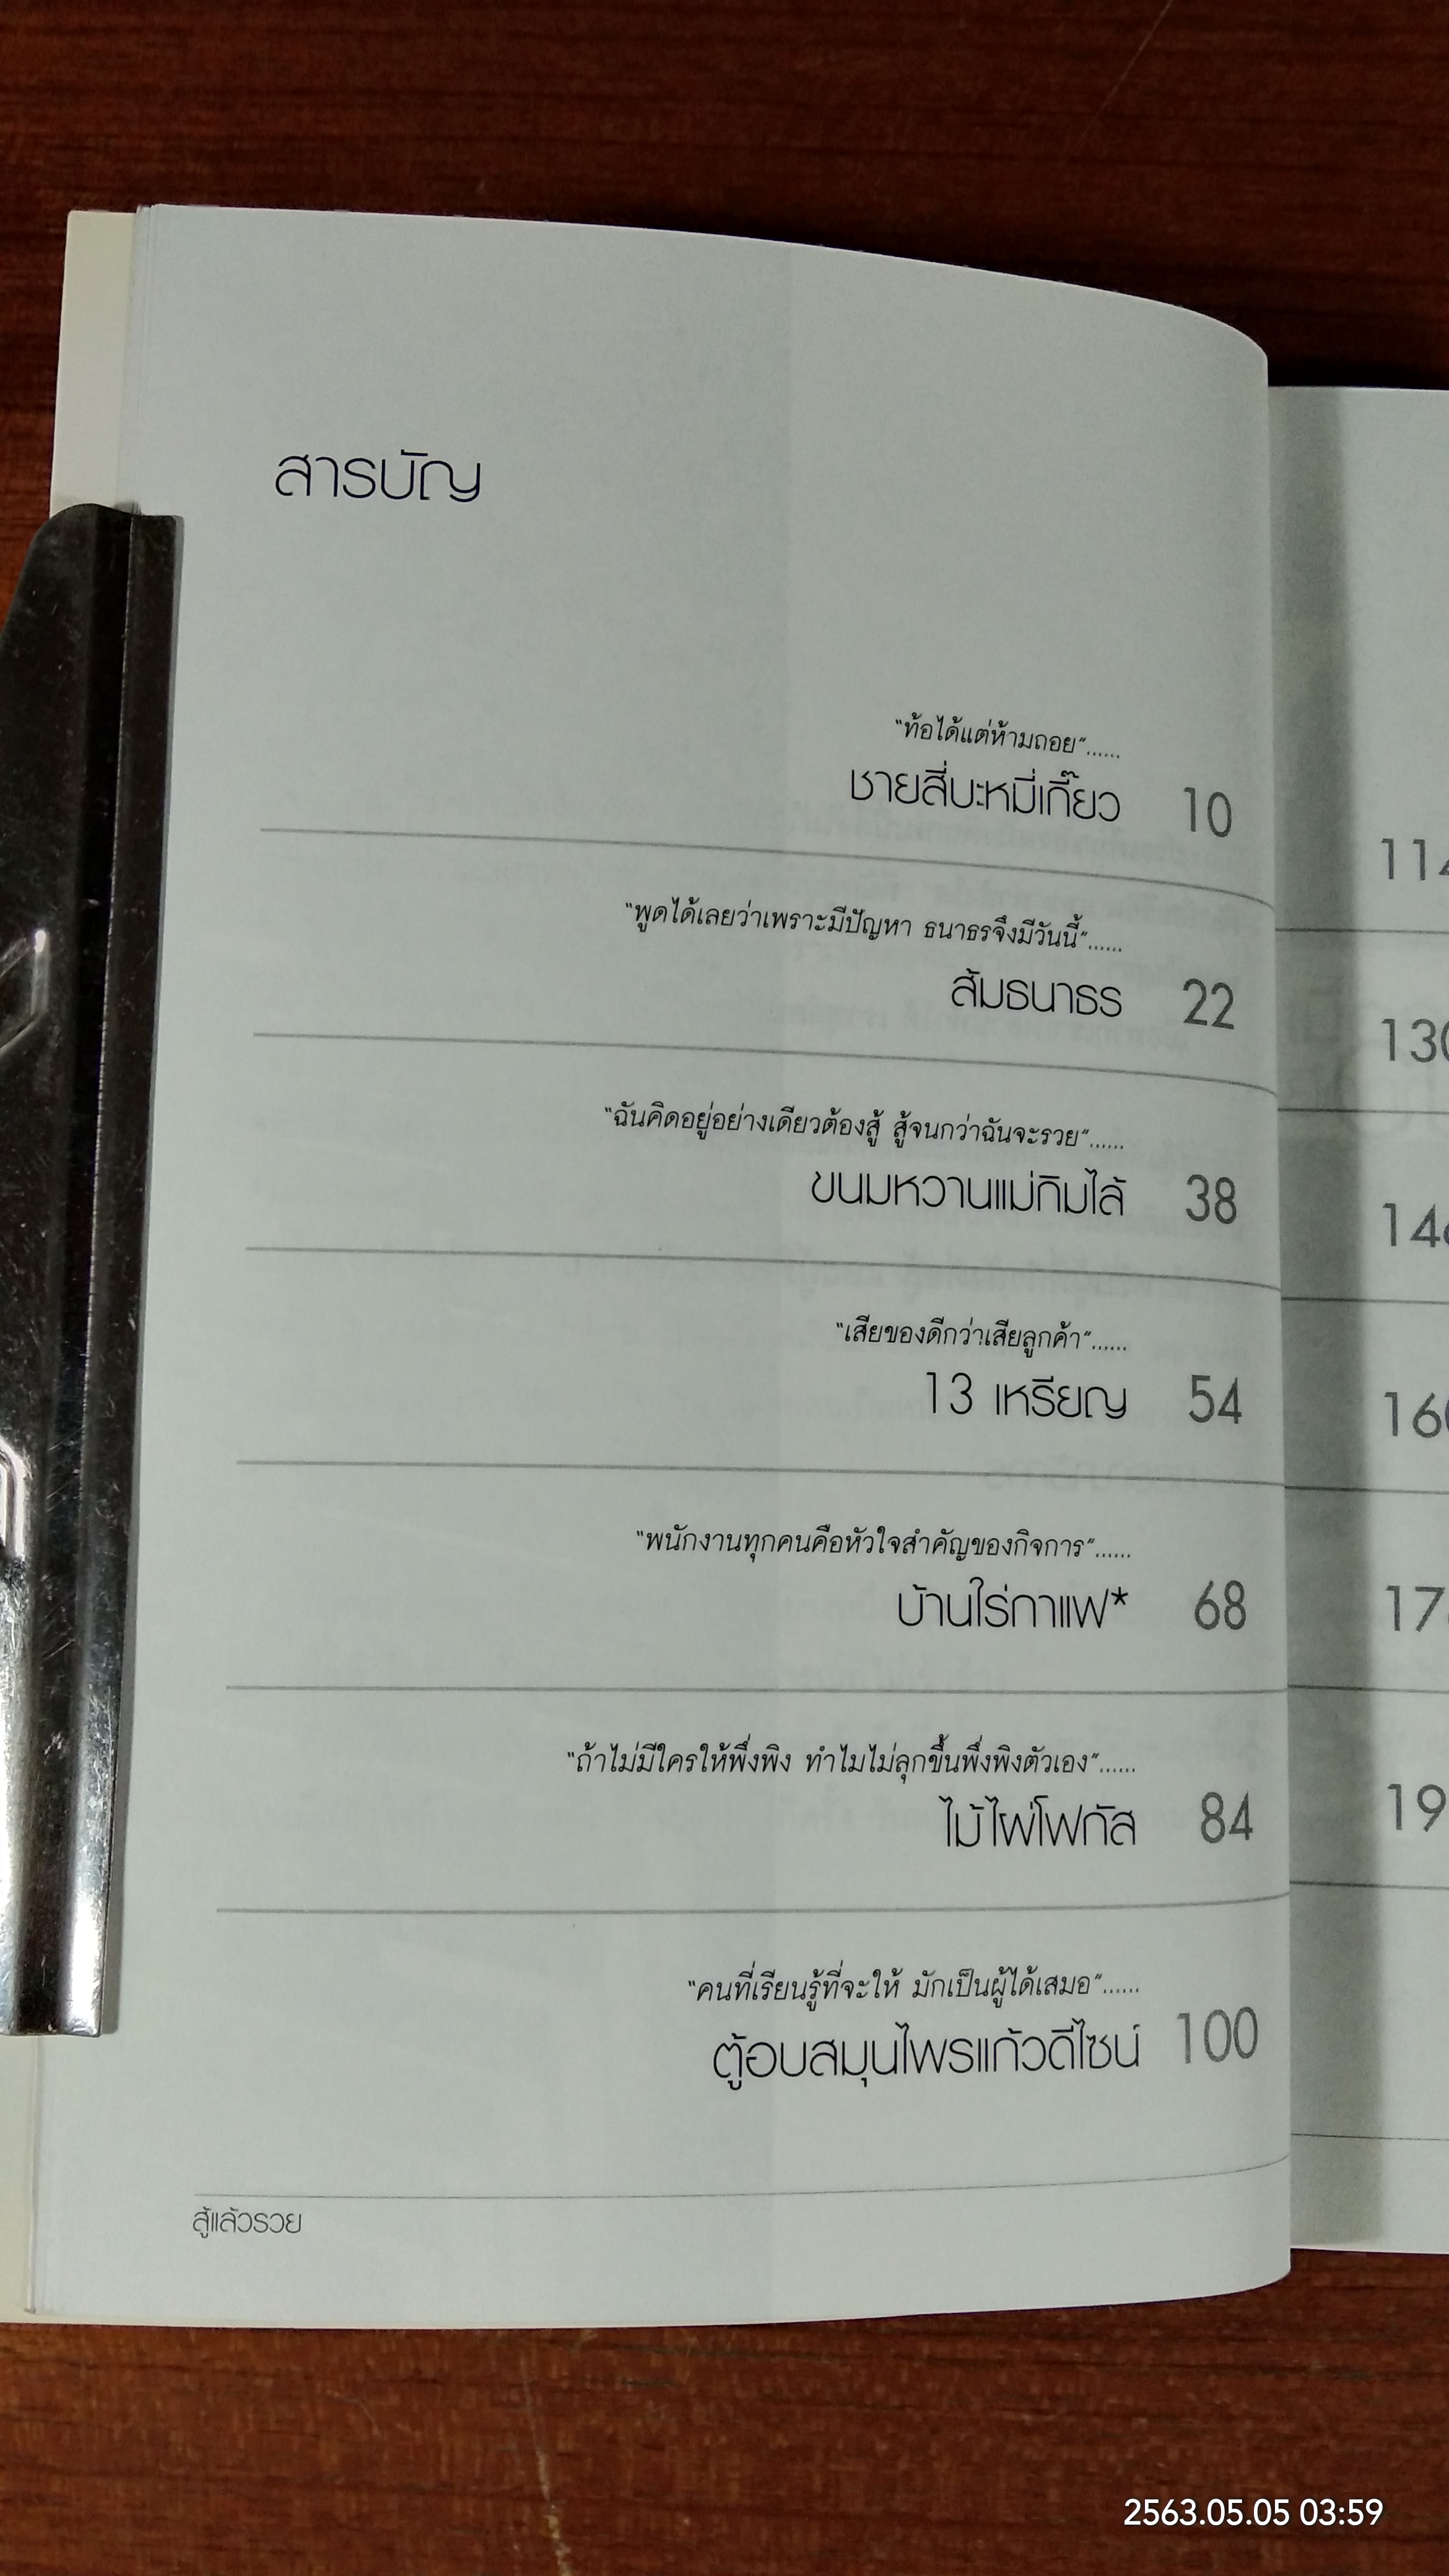 สารบัญ
"ท้อได้แต่ห้ามถอย"......
ชายสี่บะหมี่เกี๊ยว 10
"พูดได้เลยว่าเพราะมีปัญหา ธนาธรจึงมีวันนี้"......
ส้มธนาธร 22
"ฉันคิดอยู่อย่างเดียวต้องสู้ สู้จนกว่าฉันจะรวย"......
ขนมหวานแม่กิมไล้ 38
"เสียของดีกว่าเสียลูกค้า"......
13 เหรียญ 54
"พนักงานทุกคนคือหัวใจสำคัญของกิจการ"......
บ้านใร่กาแฟ* 68
"ถ้าไม่มีใครให้พึ่งพิง ทำไมไม่ลุกขึ้นพึ่งพิงตัวเอง"......
ไม้ไผ่โฟกัส 84
"คนที่เรียนรู้ที่จะให้ มักเป็นผู้ได้เสมอ"......
ตู้อบสมุนไพรแก้วดีไซน์ 100
สู้แล้วรวย
2563.05.05 03:59